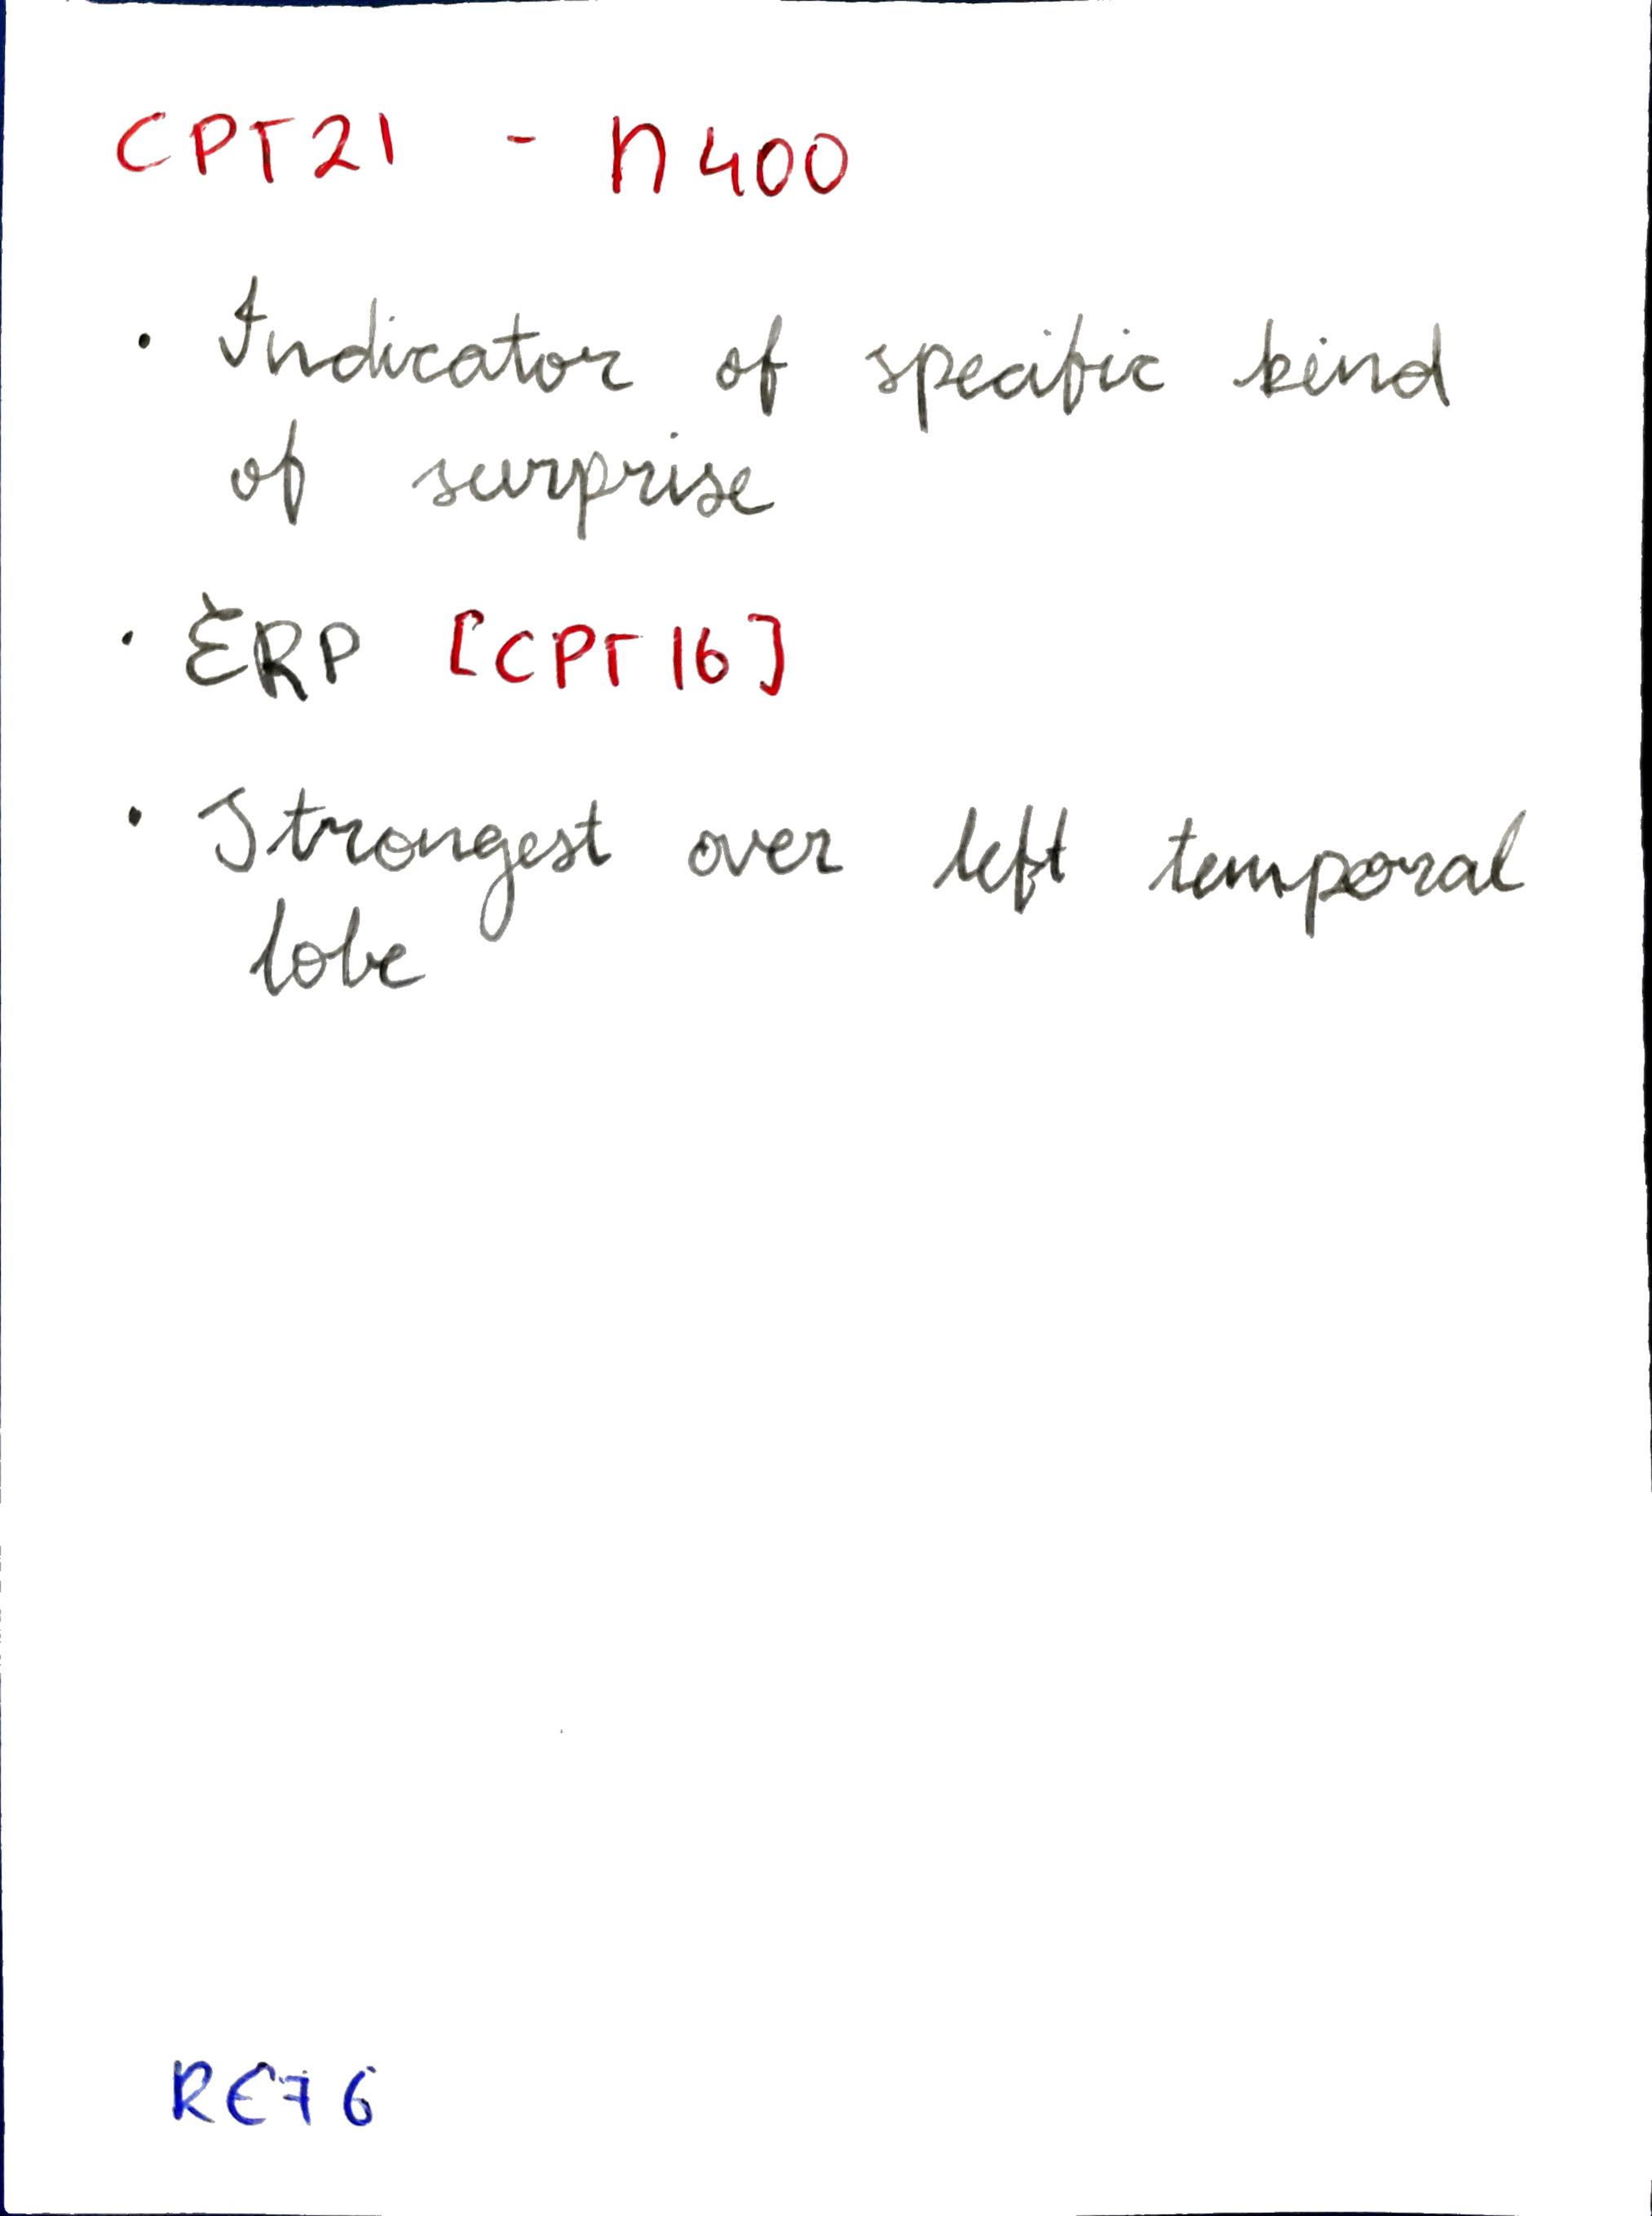 CPT21 - n400
· Indicator of specific kind
of surprise
· ERP [CPT16]
· Strongest over left temporal
lobe
RE76